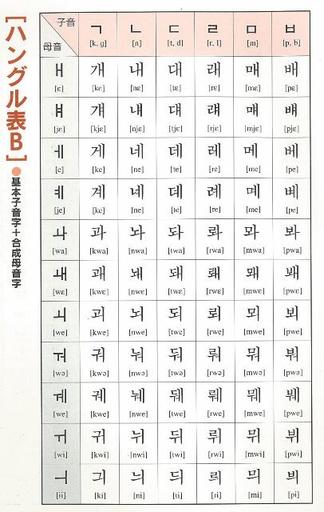 [ハングル表B]●基本子音字+合成母音字
子音 ㄱ ㄴ ㄷ ㄹ ㅁ ㅂ
母音 [k, g] [n] [t, d] [r, l] [m] [p, b]
ㅐ 개 내 대 래 매 배
[ɛ] [kɛ] [nɛ] [tɛ] [rɛ] [mɛ] [pɛ]
ㅒ 걔 냬 댸 럐 먜 뱨
[jɛ] [kjɛ] [njɛ] [tjɛ] [rjɛ] [mjɛ] [pjɛ]
ㅔ 게 네 데 레 메 베
[e] [ke] [ne] [te] [re] [me] [pe]
ㅖ 계 녜 뎨 례 몌 볘
[je] [ke] [ne] [te] [re] [me] [pe]
ㅘ 과 놔 돠 롸 뫄 봐
[wa] [kwa] [nwa] [twa] [rwa] [mwa] [pwa]
ㅙ 괘 놰 돼 뢔 뫠 봬
[wɛ] [kwɛ] [nwɛ] [twɛ] [rwɛ] [mwɛ] [pwɛ]
ㅚ 괴 뇌 되 뢰 뫼 뵈
[we] [kwe] [nwe] [twe] [rwe] [mwe] [pwe]
ㅝ 궈 눠 둬 뤄 뭐 붜
[wə] [kwə] [nwə] [twə] [rwə] [mwə] [pwə]
ㅞ 궤 눼 뒈 뤠 뭬 붸
[we] [kwe] [nwe] [twe] [rwe] [mwe] [pwe]
ㅟ 귀 뉘 뒤 뤼 뮈 뷔
[wi] [kwi] [nwi] [twi] [rwi] [mwi] [pwi]
ㅢ 긔 늬 듸 릐 믜 븨
[ɨi] [ki] [ni] [ti] [ri] [mi] [pi]